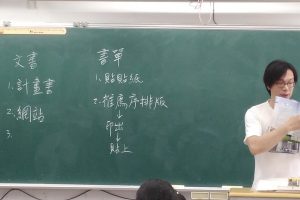 文書
1.計畫書
2.網站
3.
書單
1.貼貼紙
2.推薦序排版
↓
印出
↓
貼上